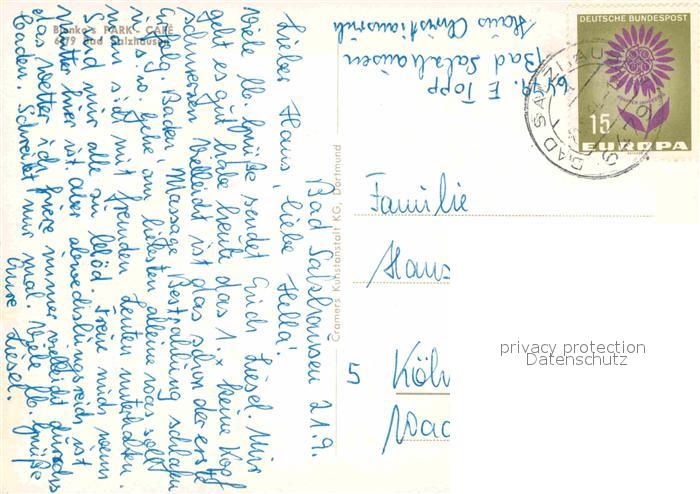 Blenke's PARK - CAFÉ
6479 Bad Salzhausen
Bad Salzhausen 21.9.
Lieber Hans, liebe Hella!
Viele lb. Grüße sendet Euch Liesel. Mir
geht es gut habe heute das 1. x keine Kopf
schmerzen vielleicht ist das schon der erste
Erfolg. Baden, Massage, Bestrahlung schlafen
u.s.w. gehe am liebsten alleine was soll
man sich mit fremden Leuten unterhalten
sind mir alle zu blöd. Freue mich wenn
wetter hier ist aber abwechslungsreich ist
das wetter ich friere immer vielleicht durchs
baden. Schreibt mir mal. Viele lb. Grüße
Eure Liesel.
Cramers Kunstanstalt KG, Dortmund
6479. E Topp
Bad Salzhausen
Haus Christiansruh
DEUTSCHE BUNDESPOST
15
EUROPA
BAD SALZHAUSEN
Familie
Hans
5 Köln
privacy protection
Datenschutz